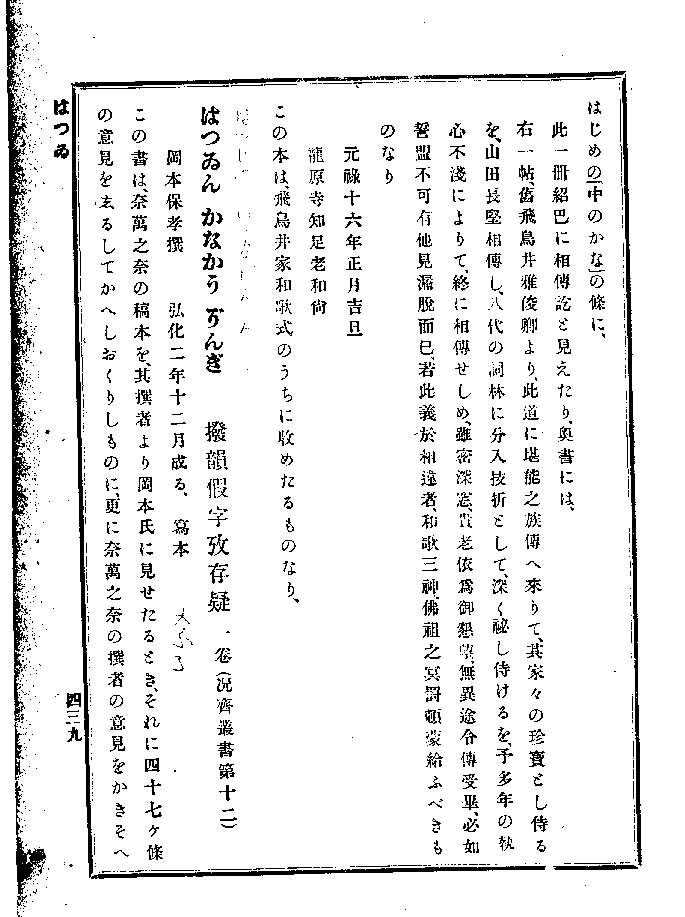 はじめの「中のかな」の條に、
此一册紹巴に相傳訖と見えたり、奧書には、
右一帖、舊飛鳥井雅俊卿より、此道に堪能之族傳へ來りて、其家々の珍寶とし侍る
を、山田長堅相傳し、八代の詞林に分入技折として、深く祕し侍けるを、予多年の執
心不淺によりて、終に相傳せしめ、雖密深窓、貴老依爲御懇望、無異途令傳受畢、必如
誓盟不可有他見漏脫而已、若此義於相違者、和歌三神、佛祖之冥罸頓蒙給ふべきも
のなり
元祿十六年正月吉旦
龍原寺知足老和尙
この本は、飛鳥井家和歌式のうちに收めたるものなり、
はつゐん かなかう ぞんぎ 撥韻假字攷存疑 一卷(況齋叢書第十二)
岡本保孝撰 弘化二年十二月成る、 寫本
この書は、奈萬之奈の稿本を、其撰者より岡本氏に見せたるとき、それに四十七ケ條
の意見を志るしてかへしおくりしものに、更に奈萬之奈の撰者の意見をかきそへ
はつゐ
四三九